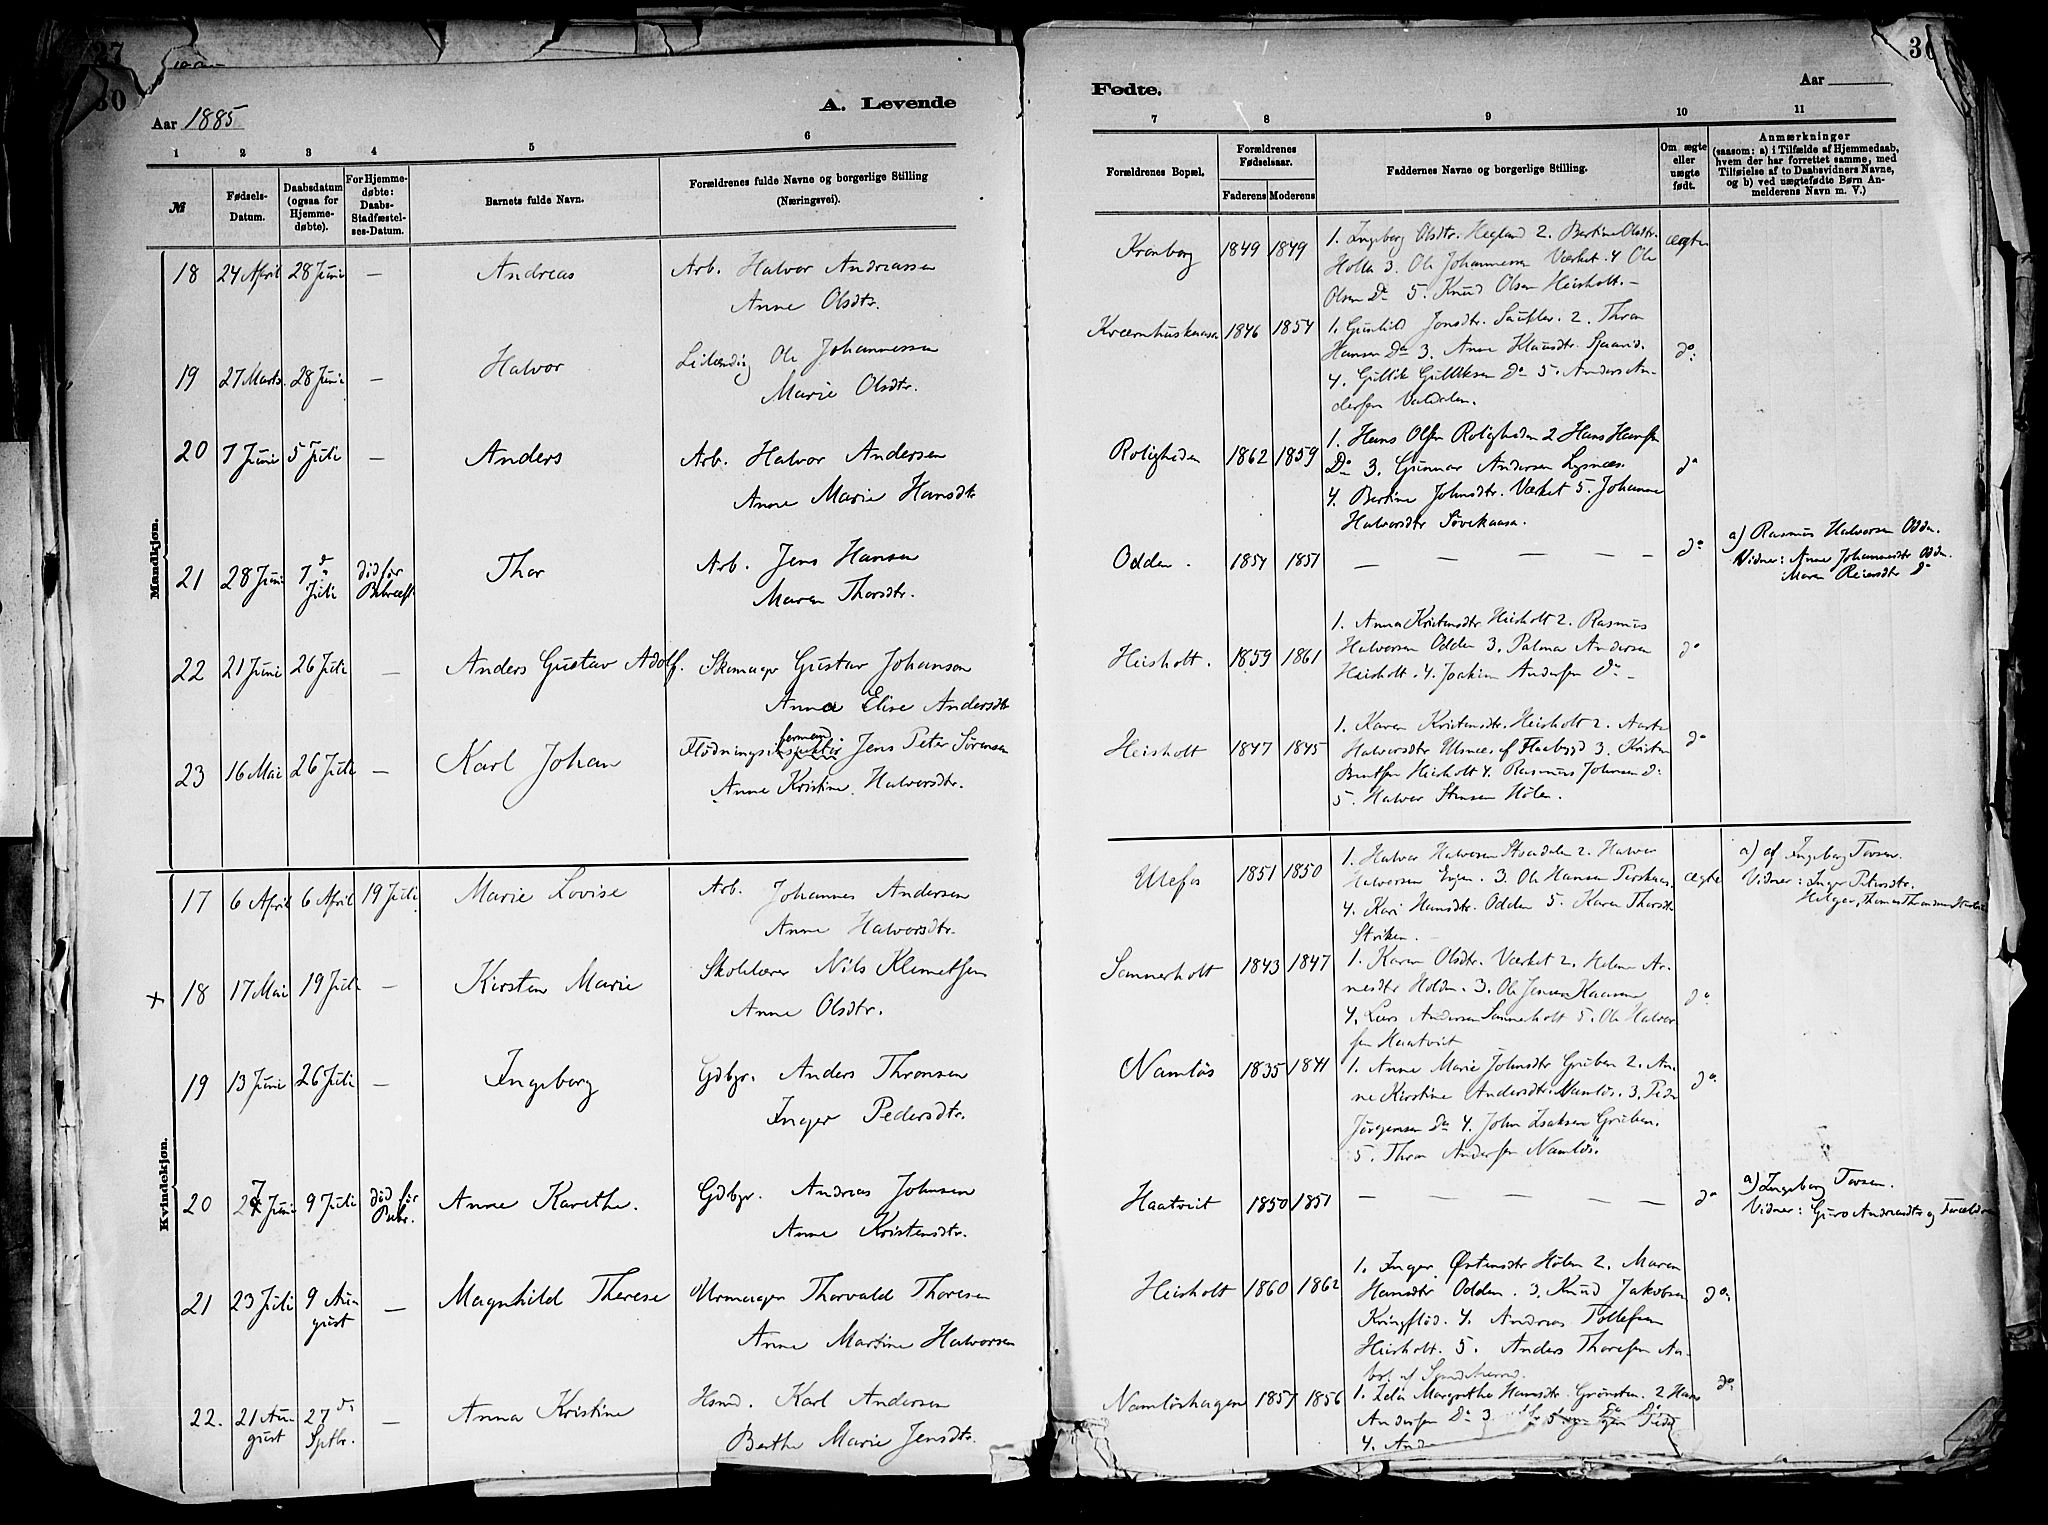 27
30
Aar 1885
A. Levende
1 2 3 4 5 6
№
Fødsels-
Datum.
Daabsdatum
(ogsaa for
Hjemme-
døbte).
For Hjemme-
døbte:
Daabs-
Stadfæstel-
ses-Datum.
Barnets fulde Navn.
Forældrenes fulde Navne og borgerlige Stilling
(Næringsvei).
Mandkjøn.
18 24 April 28 Juni — Andreas Arb. Halvor Andreassen
Anne Olsdtr.
19 27 Marts 28 Juni — Halvor Ole Johannessen
Marie Olsdtr.
20 7 Juni 5 Juli — Anders Arb. Halvor Andersen
Anne Marie Hansdtr
21 28 Juni 7 d. Juli død før Thor Arb. Jens Hansen
Maren Thorsdtr.
22 21 Juni 26 Juli — Anders Gustav Adolf. Skomager Gustav Johanson
Anna Elise Andersdtr
23 16 Mai 26 Juli — Karl Johan Jens Peter Sörensen
Anne Kristine Halvorsdtr.
Kvindekjøn.
17 6 April 6 April 19 Juli Marie Lovise Arb. Johannes Andersen
Anne Halvorsdtr.
+ 18 17 Mai 19 Juli — Kirsten Marie Skolelærer Nils Klemetsen
Anne Olsdtr.
19 13 Juni 26 Juli — Ingeborg Gdbgr. Anders Thronsen
Inger Pedersdtr.
20 27 Juni 9 Juli død før Anne Karethe. Gdbgr. Andreas Johnsen
Anne Kristensdtr.
21 23 Juli 9 Au-
gust — Magnhild Therese Urmager Thorvald Thoresen
Anne Martine Halvorsen
22. 21 Au-
gust 27 d. Sptbr. — Anna Kristine Hsmd. Karl Andersen
Berthe Marie Jensdtr.
Fødte.
Aar
7 8 9 10 11
Forældrenes Bopæl.
Forældrenes
Fødselsaar.
Faderens Moderens
Faddernes Navne og borgerlige Stilling.
Om ægte
eller
uægte
født.
Anmærkninger
(saasom: a) i Tilfælde af Hjemmedaab,
hvem der har forrettet samme, med
Tilføielse af to Daabsvidners Navne,
og b) ved uægtefødte Børn An-
melderens Navn m. V.)
Kronborg 1849 1849 1. Ingeborg Olsdtr. Hegland 2. Bertine Olsdtr. ægte
Holla 3. Ole Johannessen Værket 4 Ole
Olsen Do 5. Knud Olsen Heisholt. –
Kværnhuskaasa 1846 1854 1. Gunhild Jonsdtr. 2. Thron
Hansen Do 3. Anne do.
4. Gullik Gulliksen Do 5. Anders An-
dersen
Roligheden 1862 1859 1. Hans Olsen Roligheden 2 Hans Hansen
Do 3. Gunnar Andersen do
4. Bertine Johnsdtr. Værket 5. Johanne
Halvorsdtr
Odden. 1854 1851 — — — — do a) Rasmus Halvorsen Odden.
Vidner: Anne Johannesdtr Odden.
Maren Reiersdtr Do
Heisholt. 1859 1861 1. Anna Kristensdtr Heisholt 2. Rasmus
Halvorsen Odden 3. Palma Andersen do
Heisholt. 4. Joakim Andersen Do –
Heisholt 1847 1845 1. Karen Kristensdtr. Heisholt 2.
Halvorsdtr Ulsnes af Flaabygd 3. Kristen do
Bentsen Heisholt 4. Rasmus Johnsen Do
5. Halvor Stensen Hölen.
Ulefos 1851 1850 1. Halvor Halvorsen 2. Halvor a) af Ingeborg Tovsen.
Halvorsen 3. Ole Hansen ægte Vidner: Inger Petersdtr.
4. Kari Hansdtr. Odden 5. Karen Thorsdtr
Striken.
Sannerholt 1843 1847 1. Karen Olsdtr. Værket 2. Helene Ar-
nesdtr Holden. 3. Ole Jensen Kaasene do.
4. Lars Andersen Sannerholt 5. Ole Halvor
sen Haatveit
Namløs 1835 1841 1. Anne Marie Johnsdtr Gruben 2. An-
ne Kirstine Andersdtr. Namløs. 3. Peder do.
Jörgensen Do 4. John Isaksen Gruben.
5. Thron Andersen Namløs.
Haatveit 1850 1851 — — — — do a) Ingeborg Tovsen.
Vidner: Guro Andreasdtr og Forældrene
Heisholt 1860 1862 1. Inger Østensdtr Hölen 2. Maren
Hansdtr Odden. 3. Knud Jakobsen do.
Kringflöd. 4. Andreas Tollefsen
Heisholt. 5. Anders Thoresen
Namløshagen 1857 1856 1. Margrethe Hansdtr. 2 Hans do.
Andersen Do 3
4.